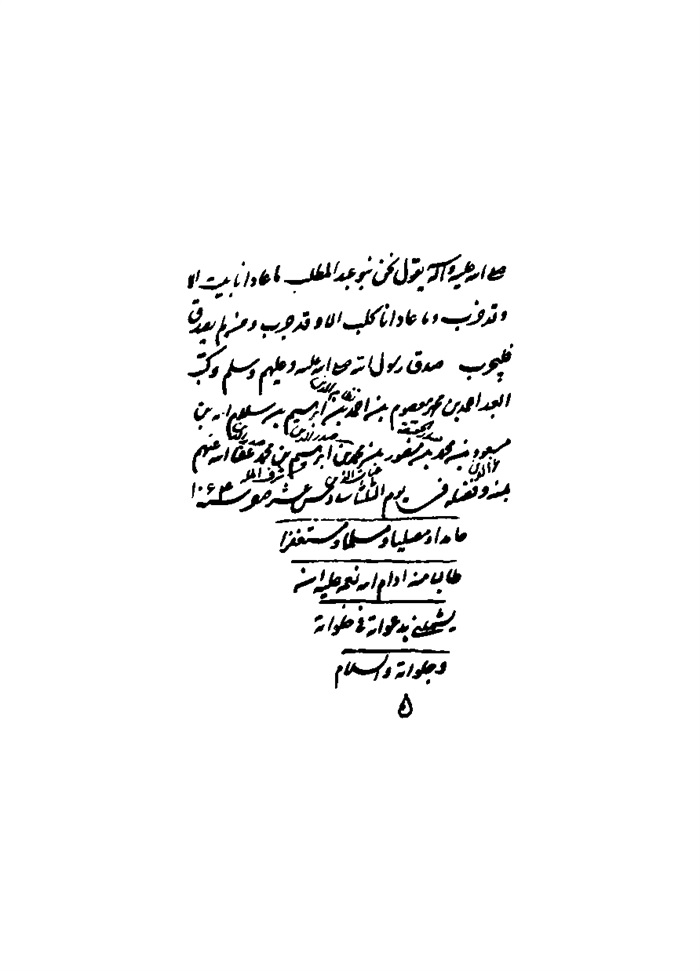 صلى الله عليه وآله يقول نحن بنو عبد المطلب ما عادانا بيت الا
وقد خرب وما عادانا كلب الا وقد جرب ومن لم يصدق
فليجرب صدق رسول الله صلى الله عليه وعليهم وسلم وكتب
العبد احمد بن محمد معصوم بن احمد بن ابرهيم بن سلام الله بن
نظام الدين
مسعود بن محمد بن منصور بن محمد بن ابرهيم بن محمد عفا الله عنهم
صدر الحقيقة صدر الدين
عماد الدين غياث الدين شرف الله
بمنه وفضله في يوم الثلثا سادس عشر صفر سنة ١٠٦٤
حامدا ومصليا ومسلما ومستغفرا
طالبا منه ادام الله نعمه عليه انه
يشملني بدعواته في خلواته
وجلواته والسلام